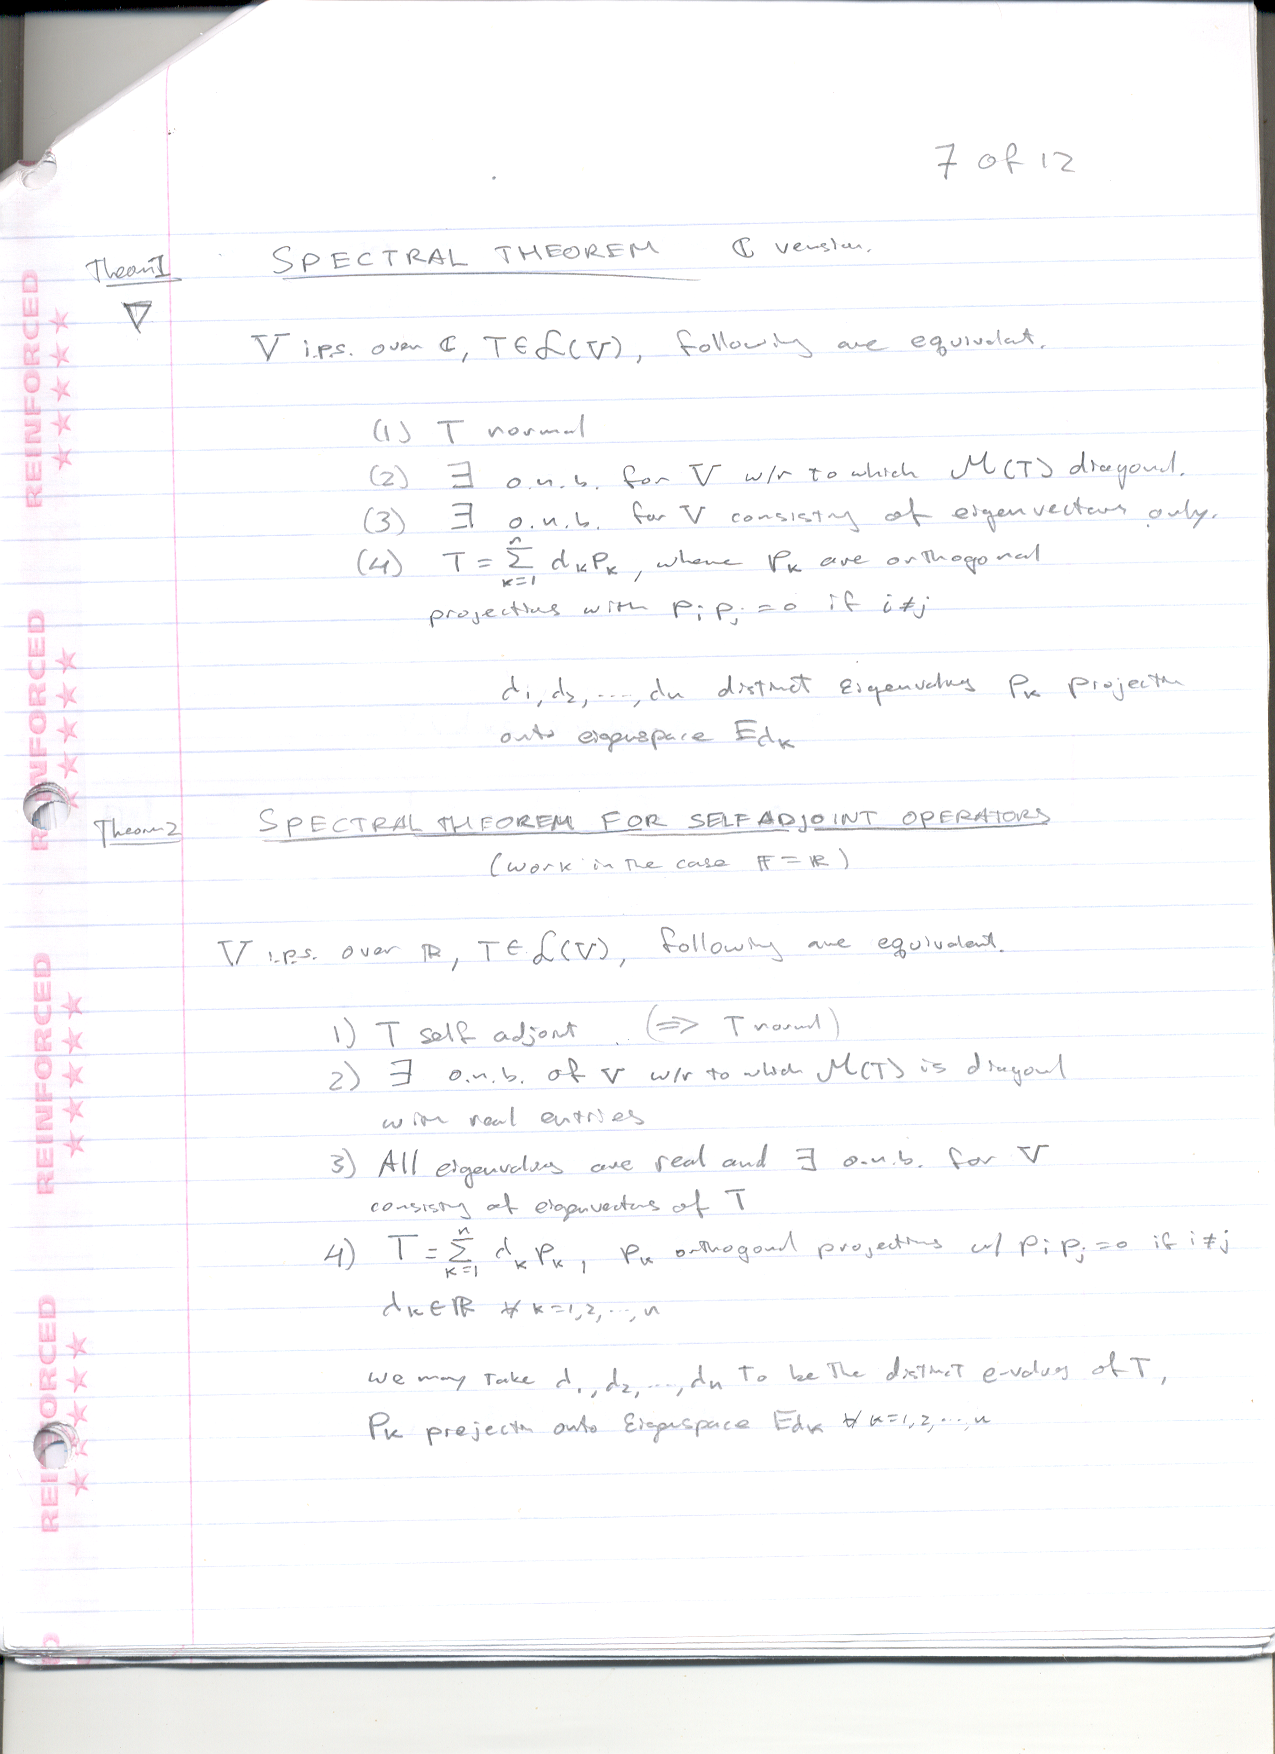 7 of 12
Theorem 1 SPECTRAL THEOREM ℂ version.
V i.p.s. over ℂ, T ∈ ℒ(V), following are equivalent.
(1) T normal
(2) ∃ o.n.b. for V w/r to which ℳ(T) diagonal.
(3) ∃ o.n.b. for V consisting of eigenvectors only.
(4) T = Σ_{k=1}^{n} d_k P_k, where P_k are orthogonal
projections with P_i P_j = 0 if i ≠ j
d_1, d_2, ..., d_n distinct eigenvalues P_k projection
onto eigenspace E_{d_k}
Theorem 2 SPECTRAL THEOREM FOR SELF ADJOINT OPERATORS
(work in the case 𝔽 = ℝ)
V i.p.s. over ℝ, T ∈ ℒ(V), following are equivalent.
1) T self adjoint (⇒ T normal)
2) ∃ o.n.b. of V w/r to which ℳ(T) is diagonal
with real entries
3) All eigenvalues are real and ∃ o.n.b. for V
consisting of eigenvectors of T
4) T = Σ_{k=1}^{n} d_k P_k, P_k orthogonal projections w/ P_i P_j = 0 if i ≠ j
d_k ∈ ℝ ∀ k = 1, 2, ..., n
we may take d_1, d_2, ..., d_n to be the distinct e-values of T,
P_k projection onto Eigenspace E_{d_k} ∀ k = 1, 2, ..., n
REINFORCED
REINFORCED
REINFORCED
REINFORCED